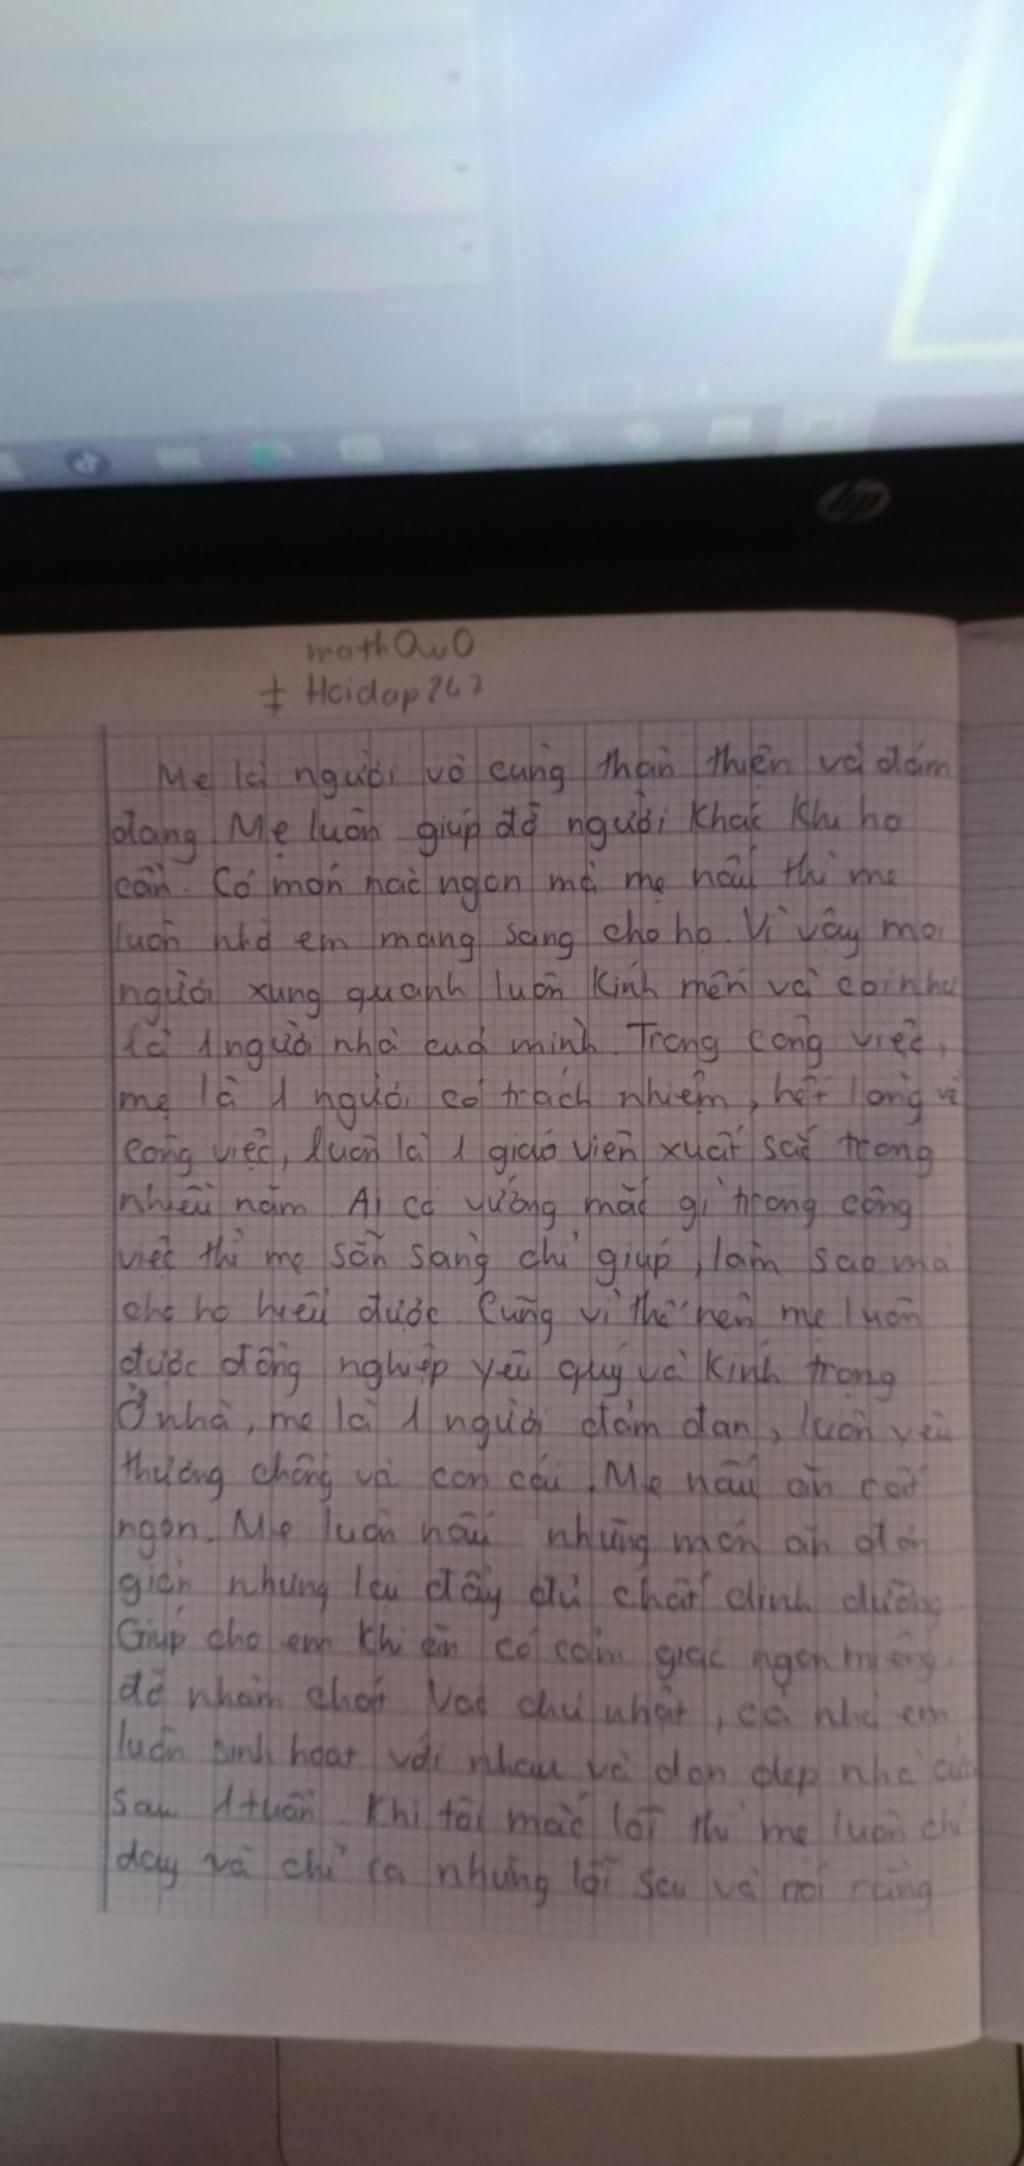 mathQwO
+ Hoidap247
Mẹ là người vô cùng thân thiện và đảm
đang. Mẹ luôn giúp đỡ người khác khi họ
cần. Có món nào ngon mà mẹ nấu thì mẹ
luôn nhờ em mang sang cho họ. Vì vậy mọi
người xung quanh luôn kính mến và coi như
là 1 người nhà của mình. Trong công việc,
mẹ là 1 người có trách nhiệm, hết lòng vì
công việc, luôn là 1 giáo viên xuất sắc trong
nhiều năm. Ai có vướng mắc gì trong công
việc thì mẹ sẵn sàng chỉ giúp, làm sao mà
cho họ hiểu được. Cũng vì thế nên mẹ luôn
được đồng nghiệp yêu quý và kính trọng
Ở nhà, mẹ là 1 người đảm đan, luôn yêu
thương chồng và con cái. Mẹ nấu ăn rất
ngon. Mẹ luôn nấu những món ăn đơn
giản nhưng lại đầy đủ chất dinh dưỡng
Giúp cho em khi ăn có cảm giác ngon miệng
đỡ nhàm chán. Vào chủ nhật, cả nhà em
luôn sinh hoạt với nhau và dọn dẹp nhà cửa
sau 1 tuần. Khi tôi mắc lỗi thì mẹ luôn chỉ
dạy và chỉ ra những lỗi sai và nói rằng